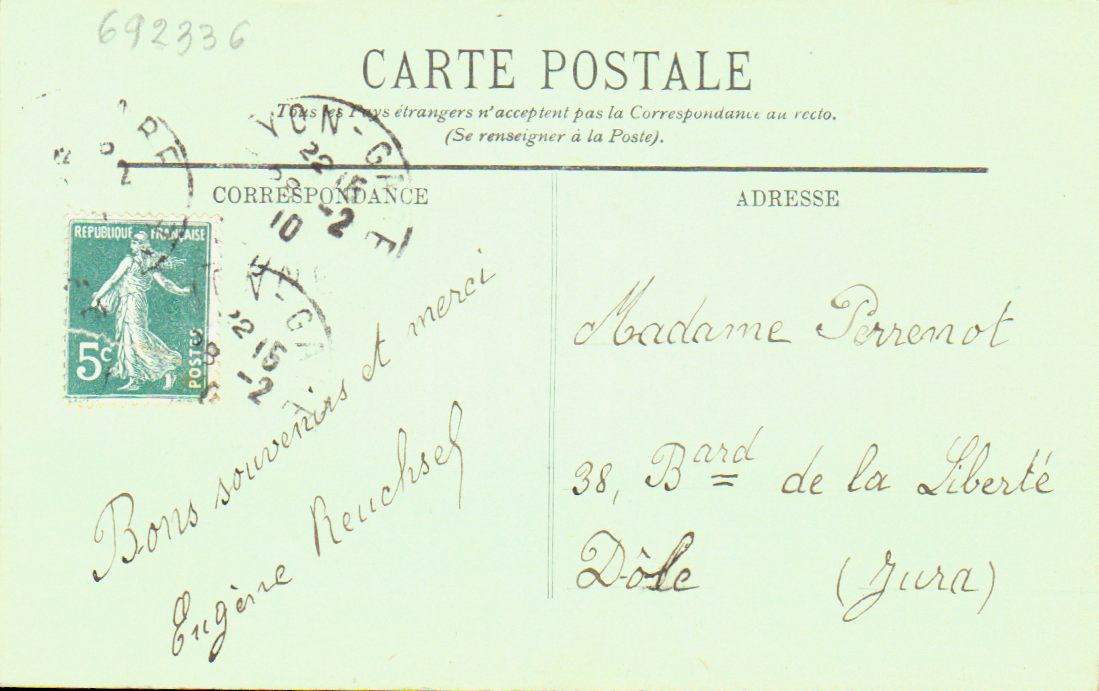 692336
CARTE POSTALE
Tous les Pays étrangers n'acceptent pas la Correspondance au recto.
(Se renseigner à la Poste).
CORRESPONDANCE
ADRESSE
REPUBLIQUE FRANÇAISE
5c
POSTES
YON-GA E
22 15
-2
10
N-GA
22 15
-2
Bons souvenirs et merci
Eugène Reuchsel
Madame Perrenot
38, Bard de la Liberté
Dôle (Jura)